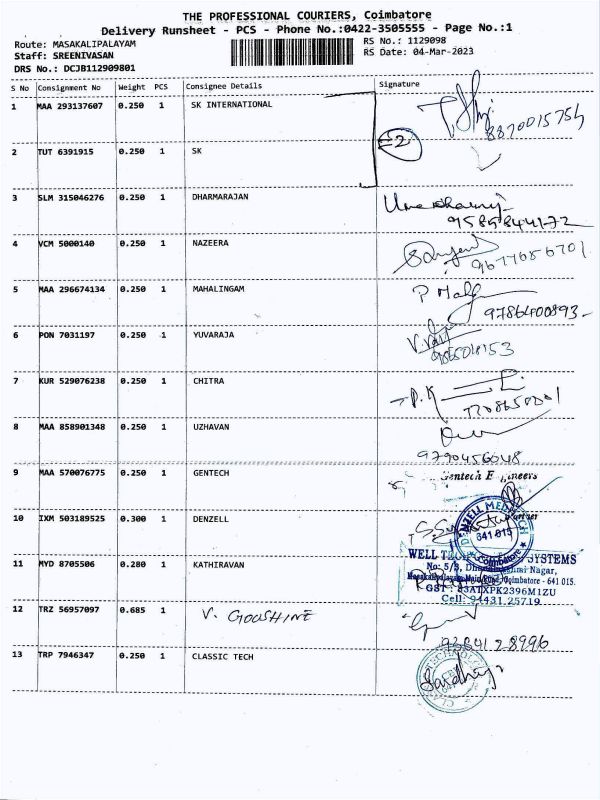 THE PROFESSIONAL COURIERS, Coimbatore
Delivery Runsheet - PCS - Phone No.:0422-3505555 - Page No.:1
Route: MASAKALIPALAYAM
Staff: SREENIVASAN
DRS No.: DCJB112909801
RS No.: 1129098
RS Date: 04-Mar-2023
S No Consignment No Weight PCS Consignee Details Signature
1 MAA 293137607 0.250 1 SK INTERNATIONAL
8870015754
=2
2 TUT 6391915 0.250 1 SK
3 SLM 315046276 0.250 1 DHARMARAJAN
9585844172
4 VCM 5000140 0.250 1 NAZEERA
9677656701
5 MAA 296674134 0.250 1 MAHALINGAM
9786400893
6 PON 7031197 0.250 1 YUVARAJA
7 KUR 529076238 0.250 1 CHITRA
8 MAA 858901348 0.250 1 UZHAVAN
9790456048
9 MAA 570076775 0.250 1 GENTECH
Gentech Engineers
10 IXM 503189525 0.300 1 DENZELL
DENZELL MEDITECH
341 015
Coimbatore
11 MYD 8705506 0.280 1 KATHIRAVAN
WELL SYSTEMS
No: 5/3, Nagar,
Coimbatore - 641 015.
GST : 33ATXPK2396M1ZU
Cell: 94431 25719
12 TRZ 56957097 0.685 1 V. GOUSHINE
93841 28996
13 TRP 7946347 0.250 1 CLASSIC TECH